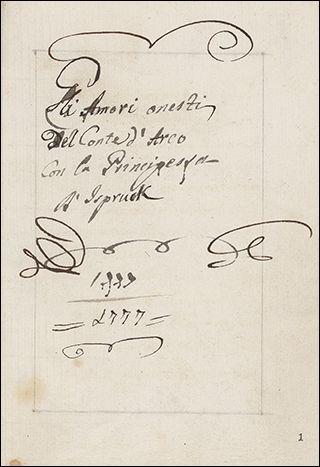 Gli Amori onesti
Del Conte d'Arco
Con la Principessa
D'Ispruck
1777
= 1777 =
1